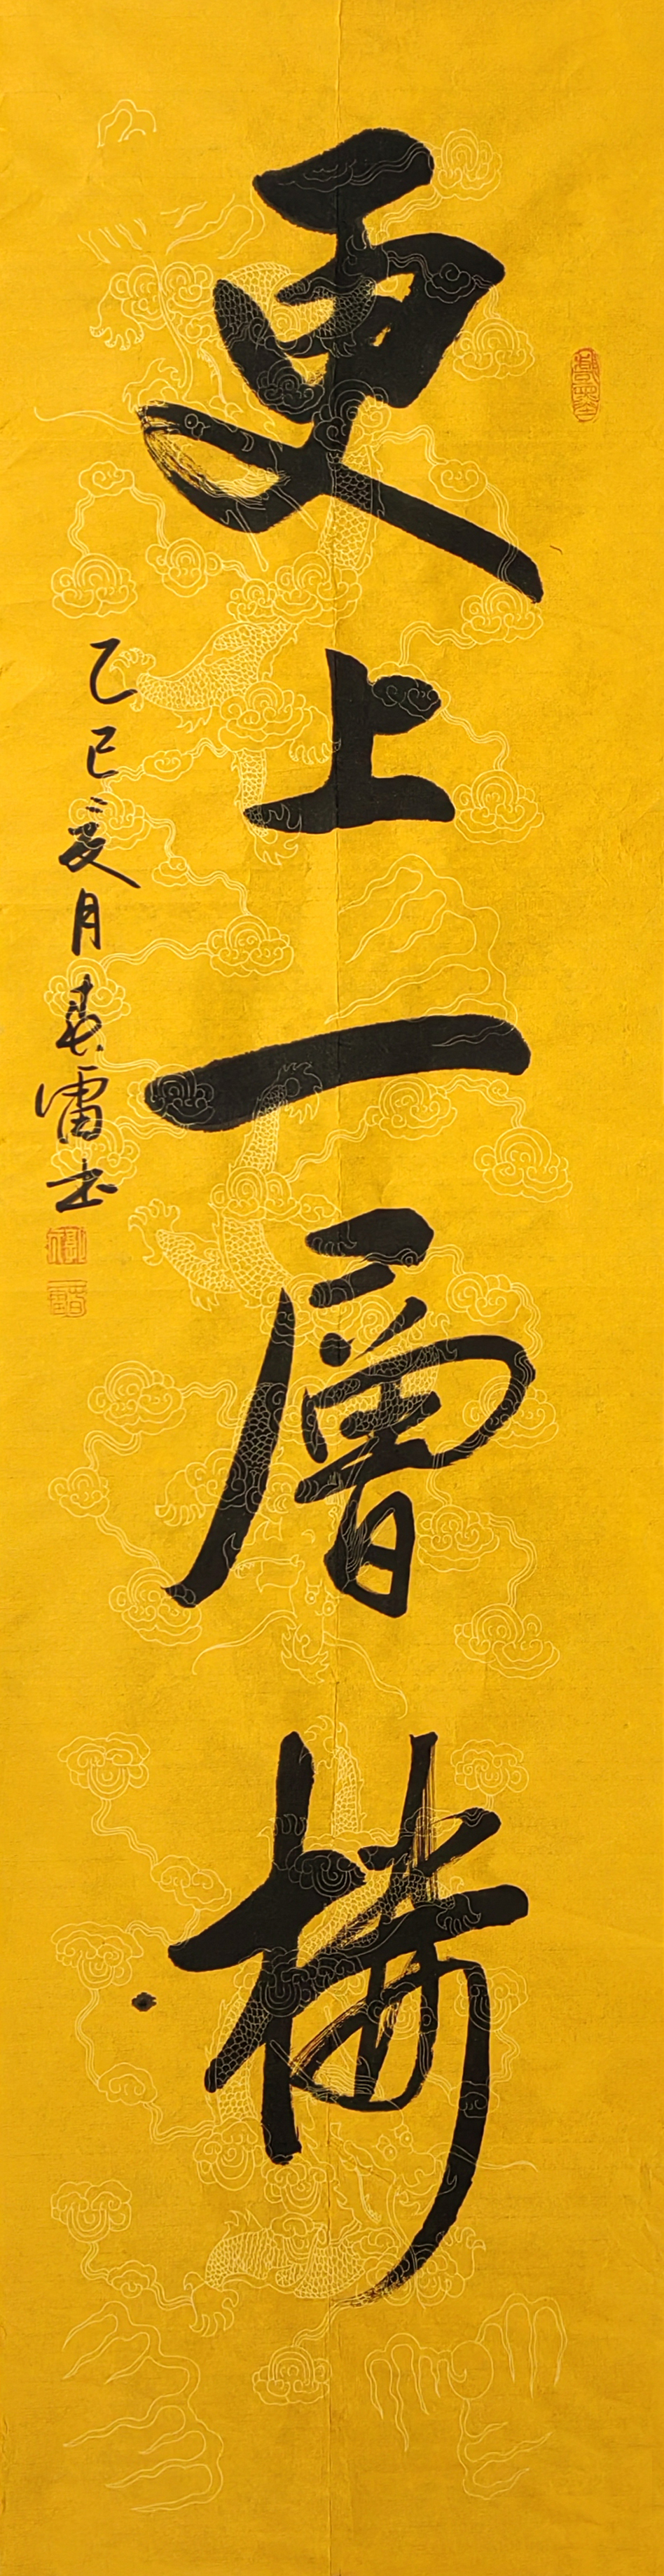 更上一層樓
乙巳夏月春雷书